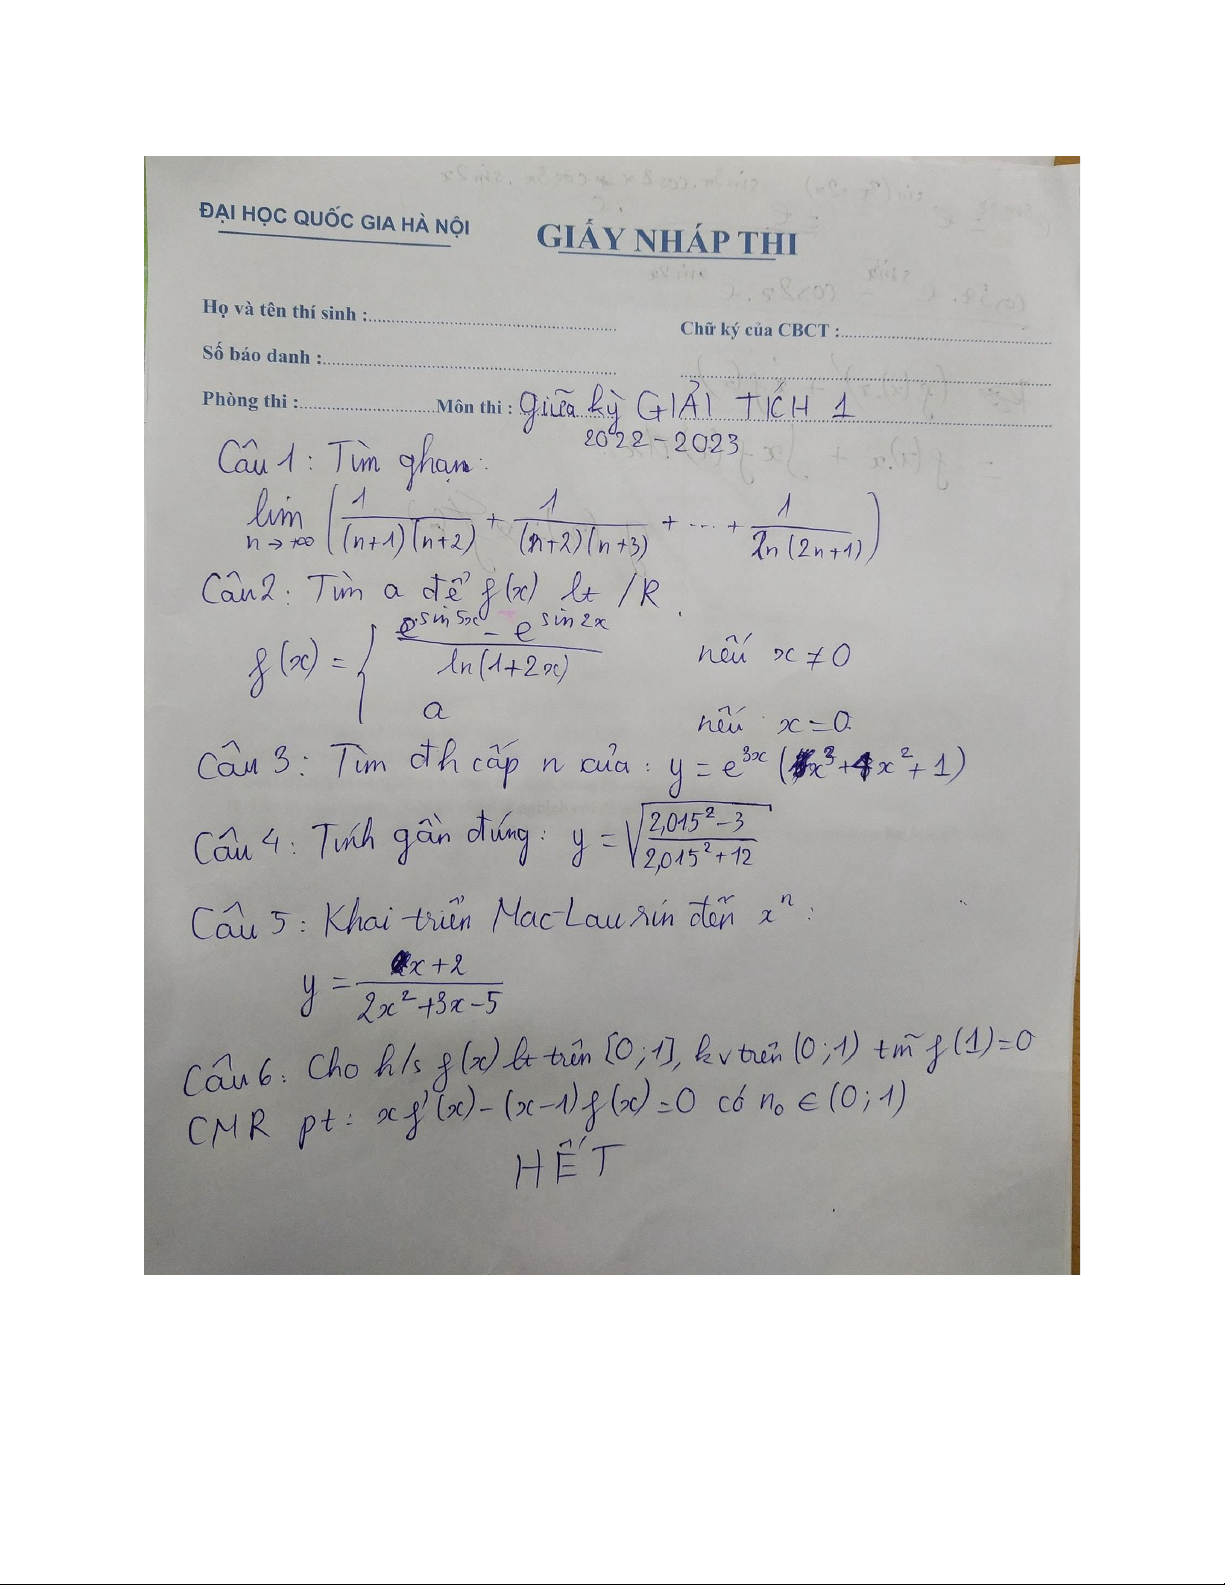 ĐẠI HỌC QUỐC GIA HÀ NỘI
GIẤY NHÁP THI
Họ và tên thí sinh :
Chữ ký của CBCT :
Số báo danh :
Phòng thi : Môn thi : Giữa kỳ GIẢI TÍCH 1
2022-2023
Câu 1: Tìm ghạn:
lim n→+∞ (1/((n+1)(n+2)) + 1/((n+2)(n+3)) + ... + 1/(2n(2n+1)))
Câu 2: Tìm a để f(x) lt /R.
f(x) = { (e^(sin 5x) - e^(sin 2x))/(ln(1+2x)) nếu x ≠ 0
a nếu x = 0
Câu 3: Tìm đh cấp n của: y = e^(3x) (x³ + x² + 1)
Câu 4: Tính gần đúng: y = √((2,015² - 3)/(2,015² + 12))
Câu 5: Khai triển Mac-Laurin đến xⁿ:
y = (x+2)/(2x² + 3x - 5)
Câu 6: Cho h/s f(x) lt trên [0;1], kv trên (0;1) tm f(1)=0
CMR pt: xf'(x) - (x-1)f(x) = 0 có n₀ ∈ (0;1)
HẾT